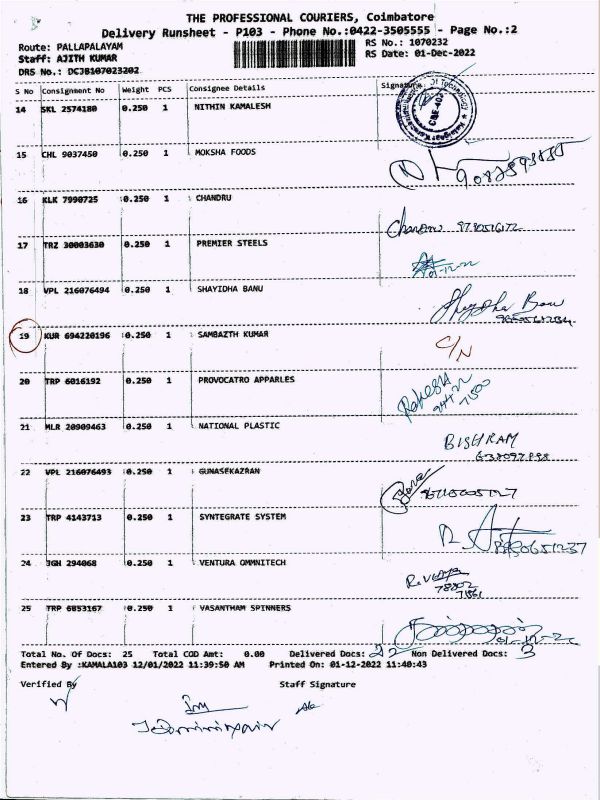 THE PROFESSIONAL COURIERS, Coimbatore
Delivery Runsheet - P103 - Phone No.:0422-3505555 - Page No.:2
Route: PALLAPALAYAM RS No.: 1070232
Staff: AJITH KUMAR RS Date: 01-Dec-2022
DRS No.: DCJB107023202
S No Consignment No Weight PCS Consignee Details Signature
14 SKL 2574180 0.250 1 NITHIN KAMALESH
15 CHL 9037450 0.250 1 MOKSHA FOODS
16 KLK 7990725 0.250 1 CHANDRU
17 TRZ 30003630 0.250 1 PREMIER STEELS
01-12-22
18 VPL 216076494 0.250 1 SHAYIDHA BANU
Shayidha Banu
19 KUR 694220196 0.250 1 SAMBAZTH KUMAR
C/N
20 TRP 6016192 0.250 1 PROVOCATRO APPARLES
Rakesh
21 MLR 20909463 0.250 1 NATIONAL PLASTIC
BISHRAM
22 VPL 216076493 0.250 1 GUNASEKAZRAN
23 TRP 4143713 0.250 1 SYNTEGRATE SYSTEM
24 JGH 294068 0.250 1 VENTURA OMMNITECH
25 TRP 6853167 0.250 1 VASANTHAM SPINNERS
Total No. Of Docs: 25 Total COD Amt: 0.00 Delivered Docs: 22 Non Delivered Docs: 3
Entered By :KAMALA103 12/01/2022 11:39:50 AM Printed On: 01-12-2022 11:40:43
Verified By Staff Signature